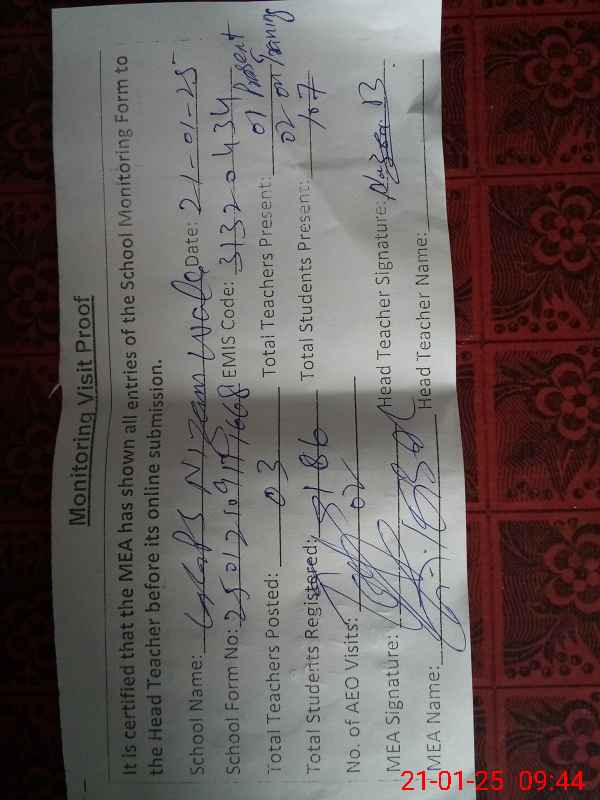 Monitoring Visit Proof
It is certified that the MEA has shown all entries of the School Monitoring Form to
the Head Teacher before its online submission.
School Name: GGPS Nizam Wala Date: 21-01-25
School Form No: EMIS Code: 31320434
Total Teachers Posted: 03 Total Teachers Present: 01 Present
02 on Training
Total Students Registered: 186 Total Students Present: 107
No. of AEO Visits: 02
MEA Signature: Head Teacher Signature:
MEA Name: Head Teacher Name:
21-01-25 09:44